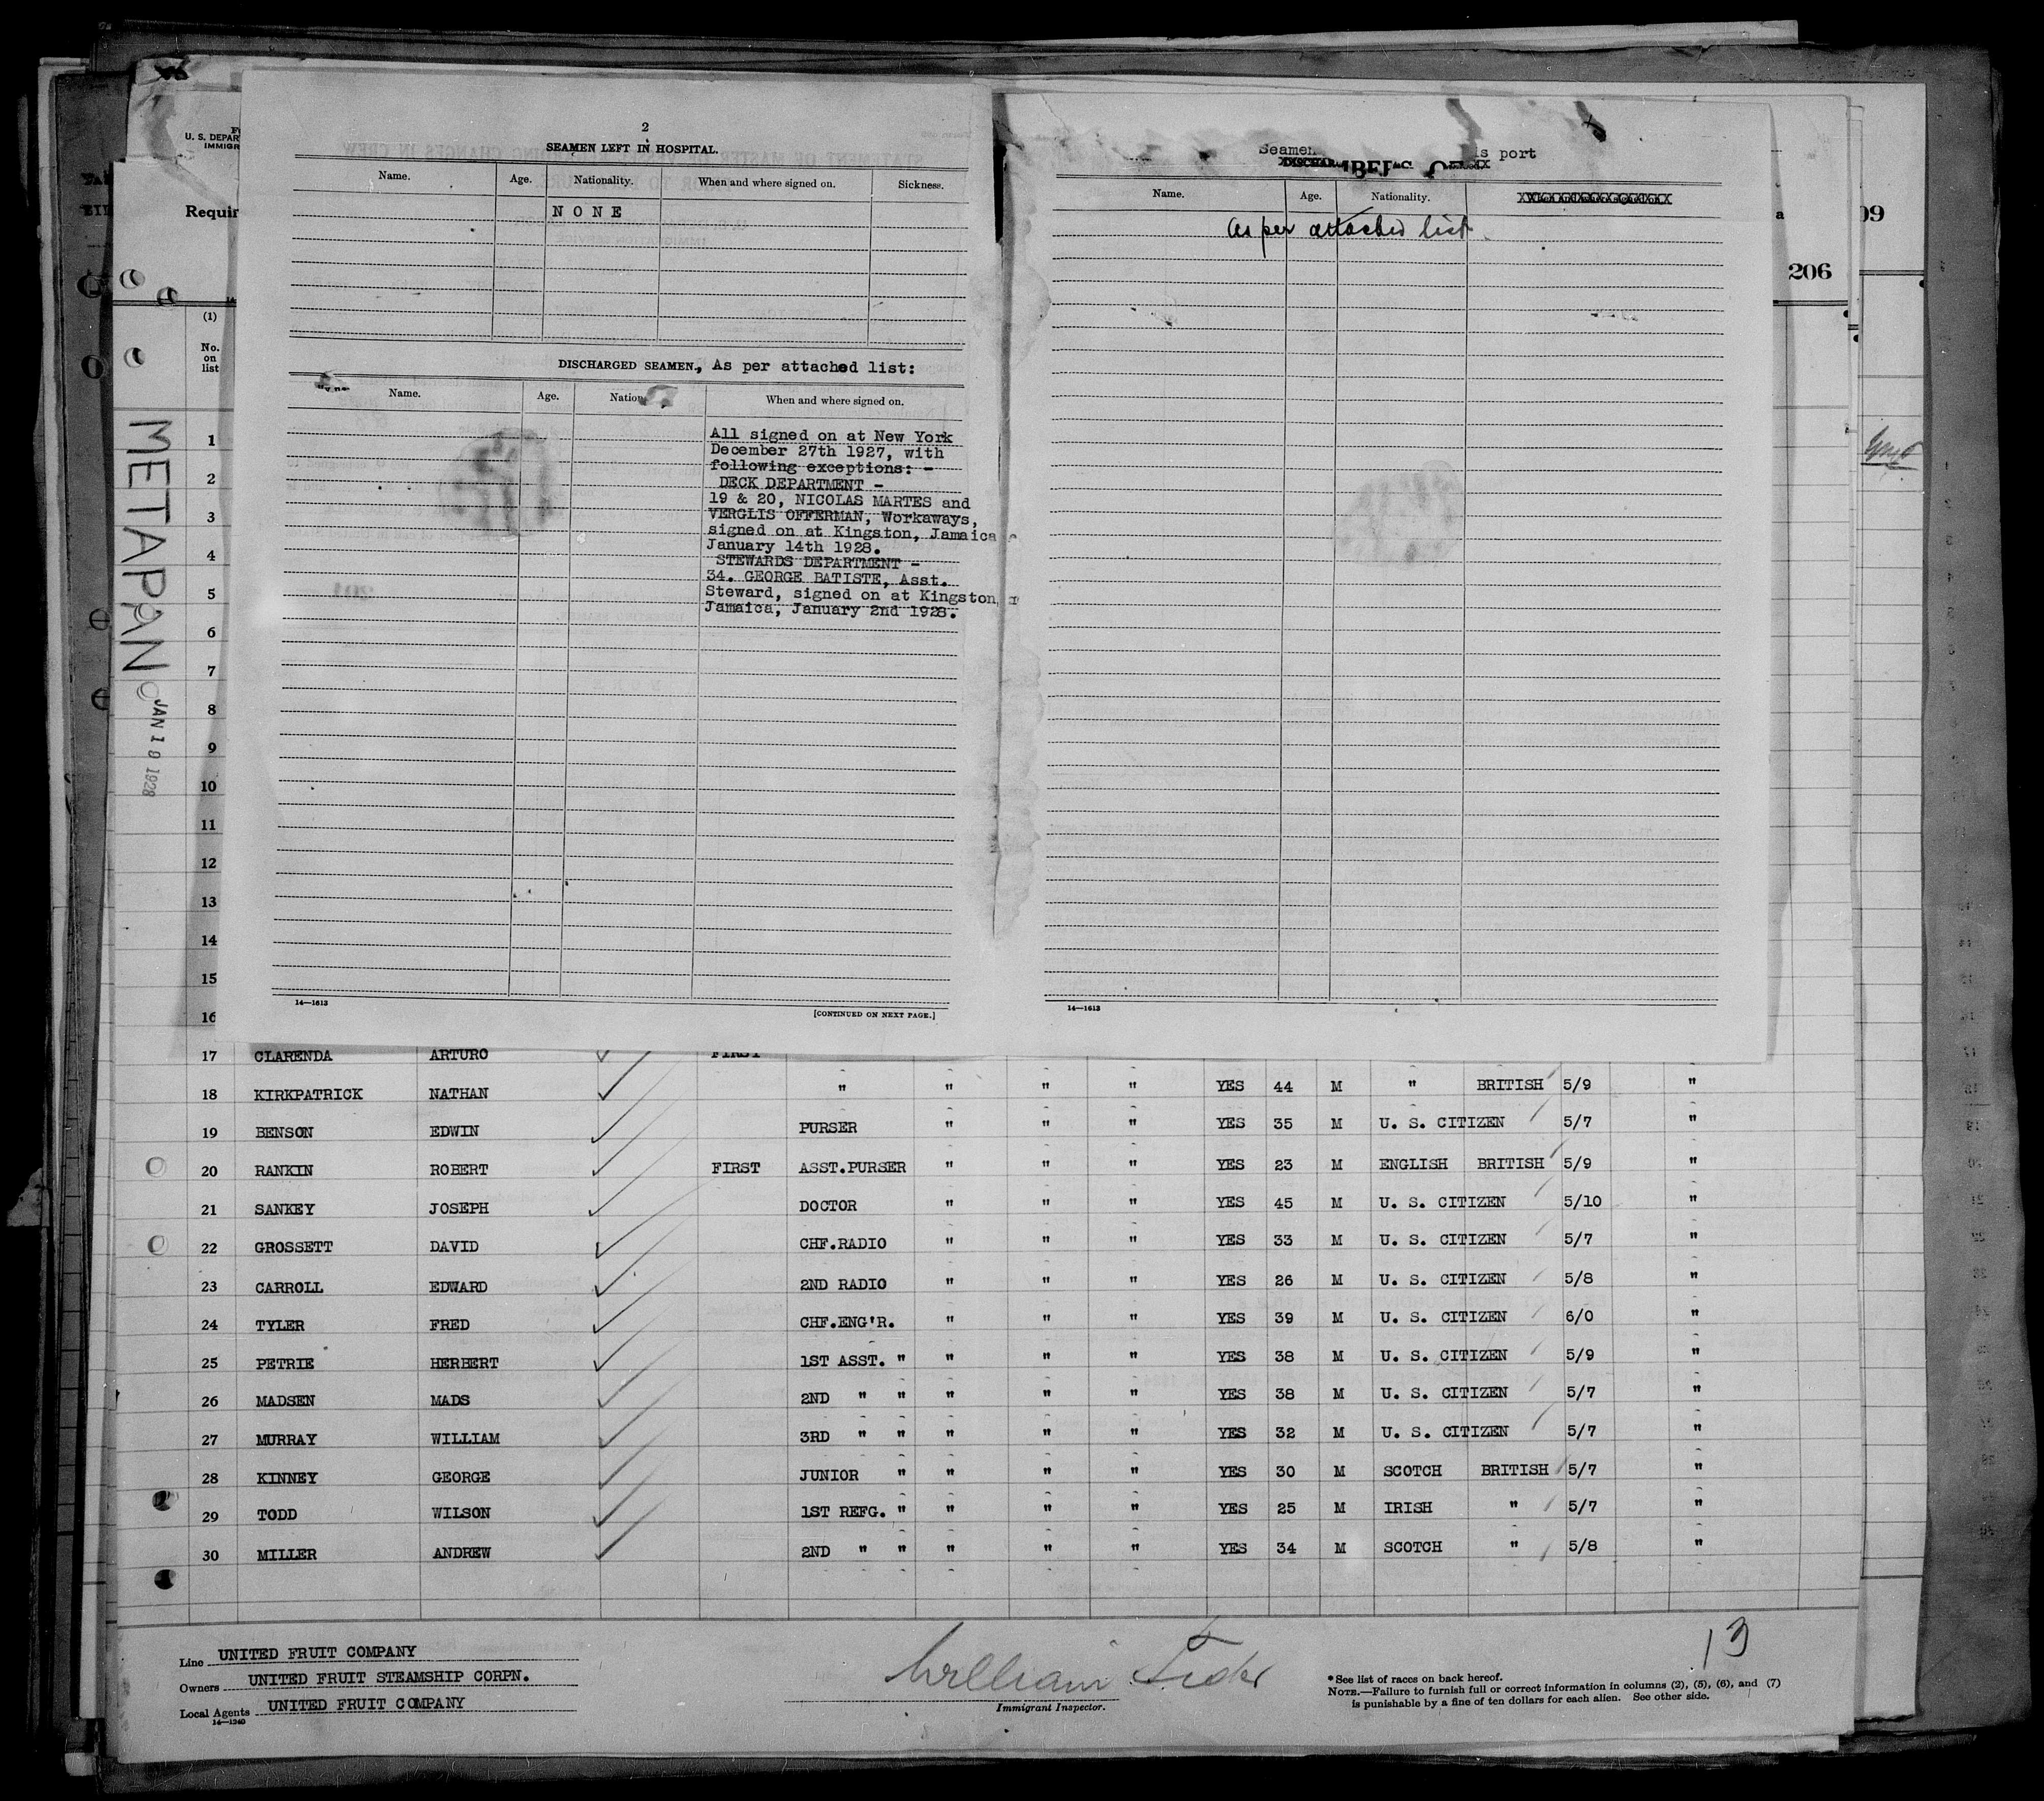 2
SEAMEN LEFT IN HOSPITAL.
Name. Age. Nationality. When and where signed on. Sickness.
NONE
DISCHARGED SEAMEN., As per attached list:
Name. Age. Nation When and where signed on.
All signed on at New York
December 27th 1927, with
following exceptions: -
DECK DEPARTMENT -
19 & 20, NICOLAS MARTES and
VERGLIS OFFERMAN, Workaways,
signed on at Kingston, Jamaica
January 14th 1928.
STEWARDS DEPARTMENT -
34. GEORGE BATISTE, Asst.
Steward, signed on at Kingston,
Jamaica, January 2nd 1928.
14—1613
[CONTINUED ON NEXT PAGE.]
Seamen is port
Name. Age. Nationality.
As per attached list
14—1613
U. S. DEPAR
IMMIGR
Requir
206
99
(1)
No.
on
list
METAPAN
JAN 19 1928
1
2
3
4
5
6
7
8
9
10
11
12
13
14
15
16
17 CLARENDA ARTURO FIRST
18 KIRKPATRICK NATHAN " " " " YES 44 M " BRITISH 5/9 "
19 BENSON EDWIN PURSER " " " YES 35 M U. S. CITIZEN 5/7 "
20 RANKIN ROBERT FIRST ASST.PURSER " " " YES 23 M ENGLISH BRITISH 5/9 "
21 SANKEY JOSEPH DOCTOR " " " YES 45 M U. S. CITIZEN 5/10 "
22 GROSSETT DAVID CHF.RADIO " " " YES 33 M U. S. CITIZEN 5/7 "
23 CARROLL EDWARD 2ND RADIO " " " YES 26 M U. S. CITIZEN 5/8 "
24 TYLER FRED CHF.ENG'R. " " " YES 39 M U. S. CITIZEN 6/0 "
25 PETRIE HERBERT 1ST ASST. " " " " YES 38 M U. S. CITIZEN 5/9 "
26 MADSEN MADS 2ND " " " " " YES 38 M U. S. CITIZEN 5/7 "
27 MURRAY WILLIAM 3RD " " " " " YES 32 M U. S. CITIZEN 5/7 "
28 KINNEY GEORGE JUNIOR " " " " YES 30 M SCOTCH BRITISH 5/7 "
29 TODD WILSON 1ST REFG. " " " " YES 25 M IRISH " 5/7 "
30 MILLER ANDREW 2ND " " " " " YES 34 M SCOTCH " 5/8 "
13
Line UNITED FRUIT COMPANY
Owners UNITED FRUIT STEAMSHIP CORPN.
Local Agents UNITED FRUIT COMPANY
14—1240
William
Immigrant Inspector.
* See list of races on back hereof.
NOTE.—Failure to furnish full or correct information in columns (2), (5), (6), and (7)
is punishable by a fine of ten dollars for each alien. See other side.